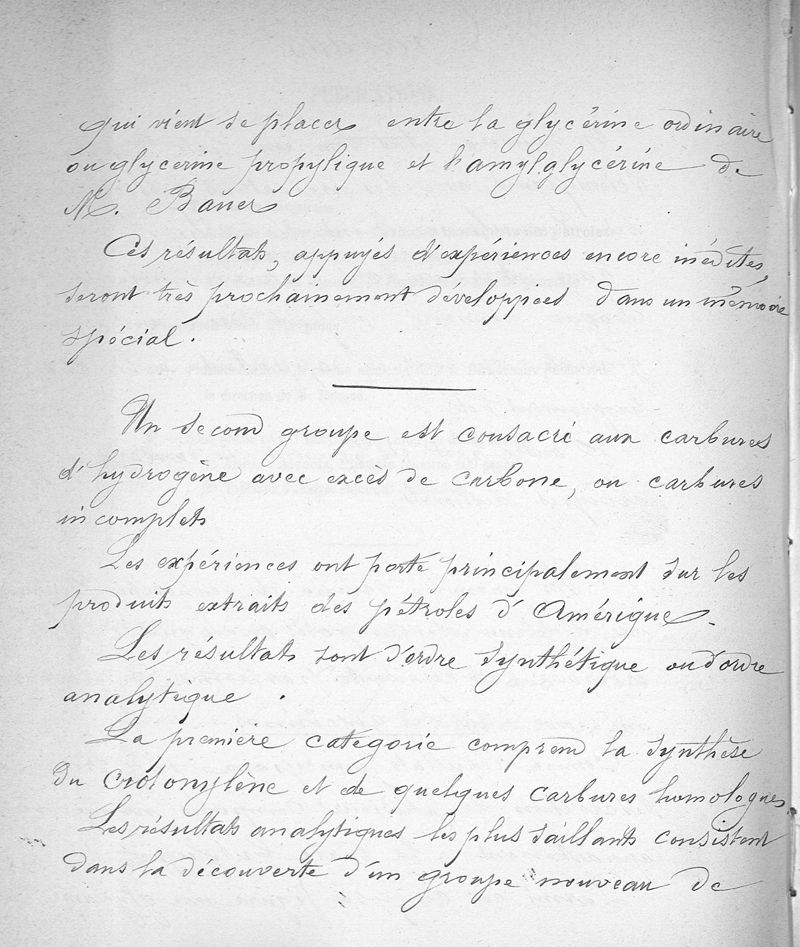 qui vient se placer entre la glycérine ordinaire
ou glycerine propylique et l'amylglycérine de
M. Bauer
Ces résultats, appuyés d'expériences encore inédites,
seront très prochainement développées dans un mémoire
spécial.
Un second groupe est consacré aux carbures
d'hydrogène avec excès de carbone, ou carbures
incomplets
Les expériences ont porté principalement sur les
produits extraits des pétroles d'Amérique.
Les résultats sont d'ordre synthétique ou d'ordre
analytique.
La première catégorie comprend la synthèse
du crotonylène et de quelques carbures homologues,
Les résultats analytiques les plus saillants consistent
dans la découverte d'un groupe nouveau de